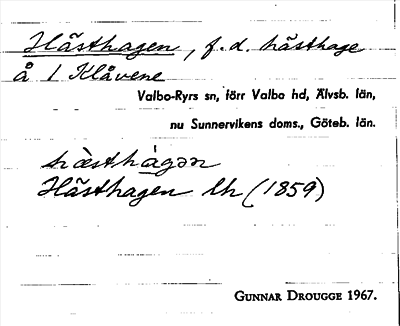 Hästhagen, f.d. hästhage
å 1 Klåvene
Valbo-Ryrs sn, förr Valbo hd, Älvsb. län,
nu Sunnervikens doms., Göteb. län.
hæ̀sthàgən
Hästhagen lh (1859)
GUNNAR DROUGGE 1967.